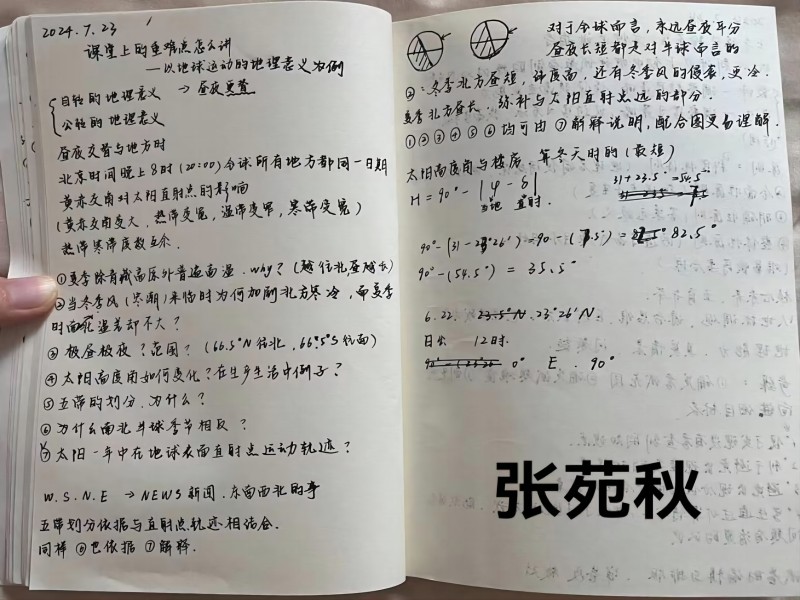 2024.7.23
课堂上的重难点怎么讲
——以地球运动的地理意义为例
自转的地理意义 → 昼夜更替
公转的地理意义
昼夜交替与地方时
北京时间晚上8时(20:00)全球所有地方都同一日期
黄赤交角对太阳直射点的影响
(黄赤交角变大,热带变宽,温带变窄,寒带变宽)
热带寒带度数互余.
①夏季除青藏高原外普遍高温.why?(越往北昼越长)
②当冬季风(寒潮)来临时为何加剧北方寒冷,而夏季
时南北温差却不大?
③极昼极夜?范围?(66.5°N往北,66.5°S往南)
④太阳高度角如何变化?在生产生活中例子?
⑤五带的划分.为什么?
⑥为什么南北半球季节相反?
⑦太阳一年中在地球表面直射点运动轨迹?
W.S.N.E → NEWS新闻.东南西北的事
五带划分依据与直射点轨迹相结合.
同样⑥也依据⑦解释.
对于全球而言,永远昼夜平分
昼夜长短都是对半球而言的
②:冬季北方昼短,纬度高,还有冬季风的侵袭,更冷.
夏季北方昼长.弥补与太阳直射点远的部分.
①②③④⑤⑥均可由⑦解释说明,配合图更易理解.
太阳高度角与楼房.算冬天时的(最短)
H=90°-|φ-δ| 31+23.5°=54.5°
当地 直射.
90°-(31-23°26′)=90-(7.5°)=82.5°
90°-(54.5°)=35.5°
6.22. 23.5°N 23°26′N.
日出 12时.
0° E. 90°
张苑秋